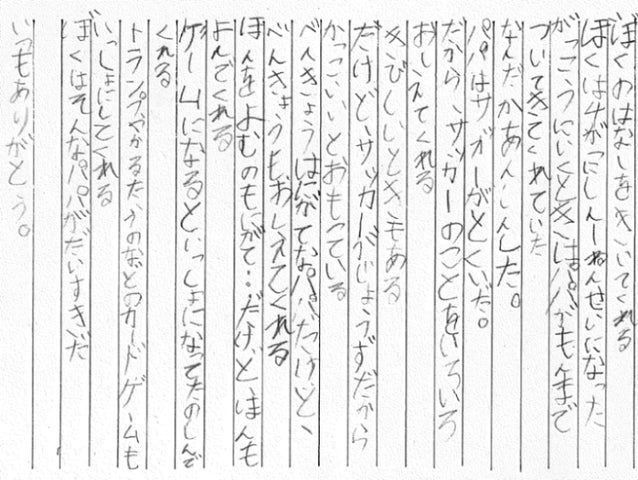 ぼくのはなしをきいてくれる
ぼくは4がつにしょう一ねんせいになった
がっこうにいくときはパパがもんまで
ついてきてくれていた
なんだかあんしんした。
パパはサッカーがとくいだ。
だから、サッカーのことをいろいろ
おしえてくれる
きびしいときもある
だけど、サッカーがじょうずだから
かっこいいとおもっている
べんきょうはにがてなパパだけど、
べんきょうもおしえてくれる
ほんをよむのもにがて・・だけどほんも
よんでくれる
ゲームになるといっしょになってたのしんで
くれる
トランプやかるたうのなどのカードゲームも
いっしょにしてくれる
ぼくはそんなパパがだいすきだ
いつもありがとう。